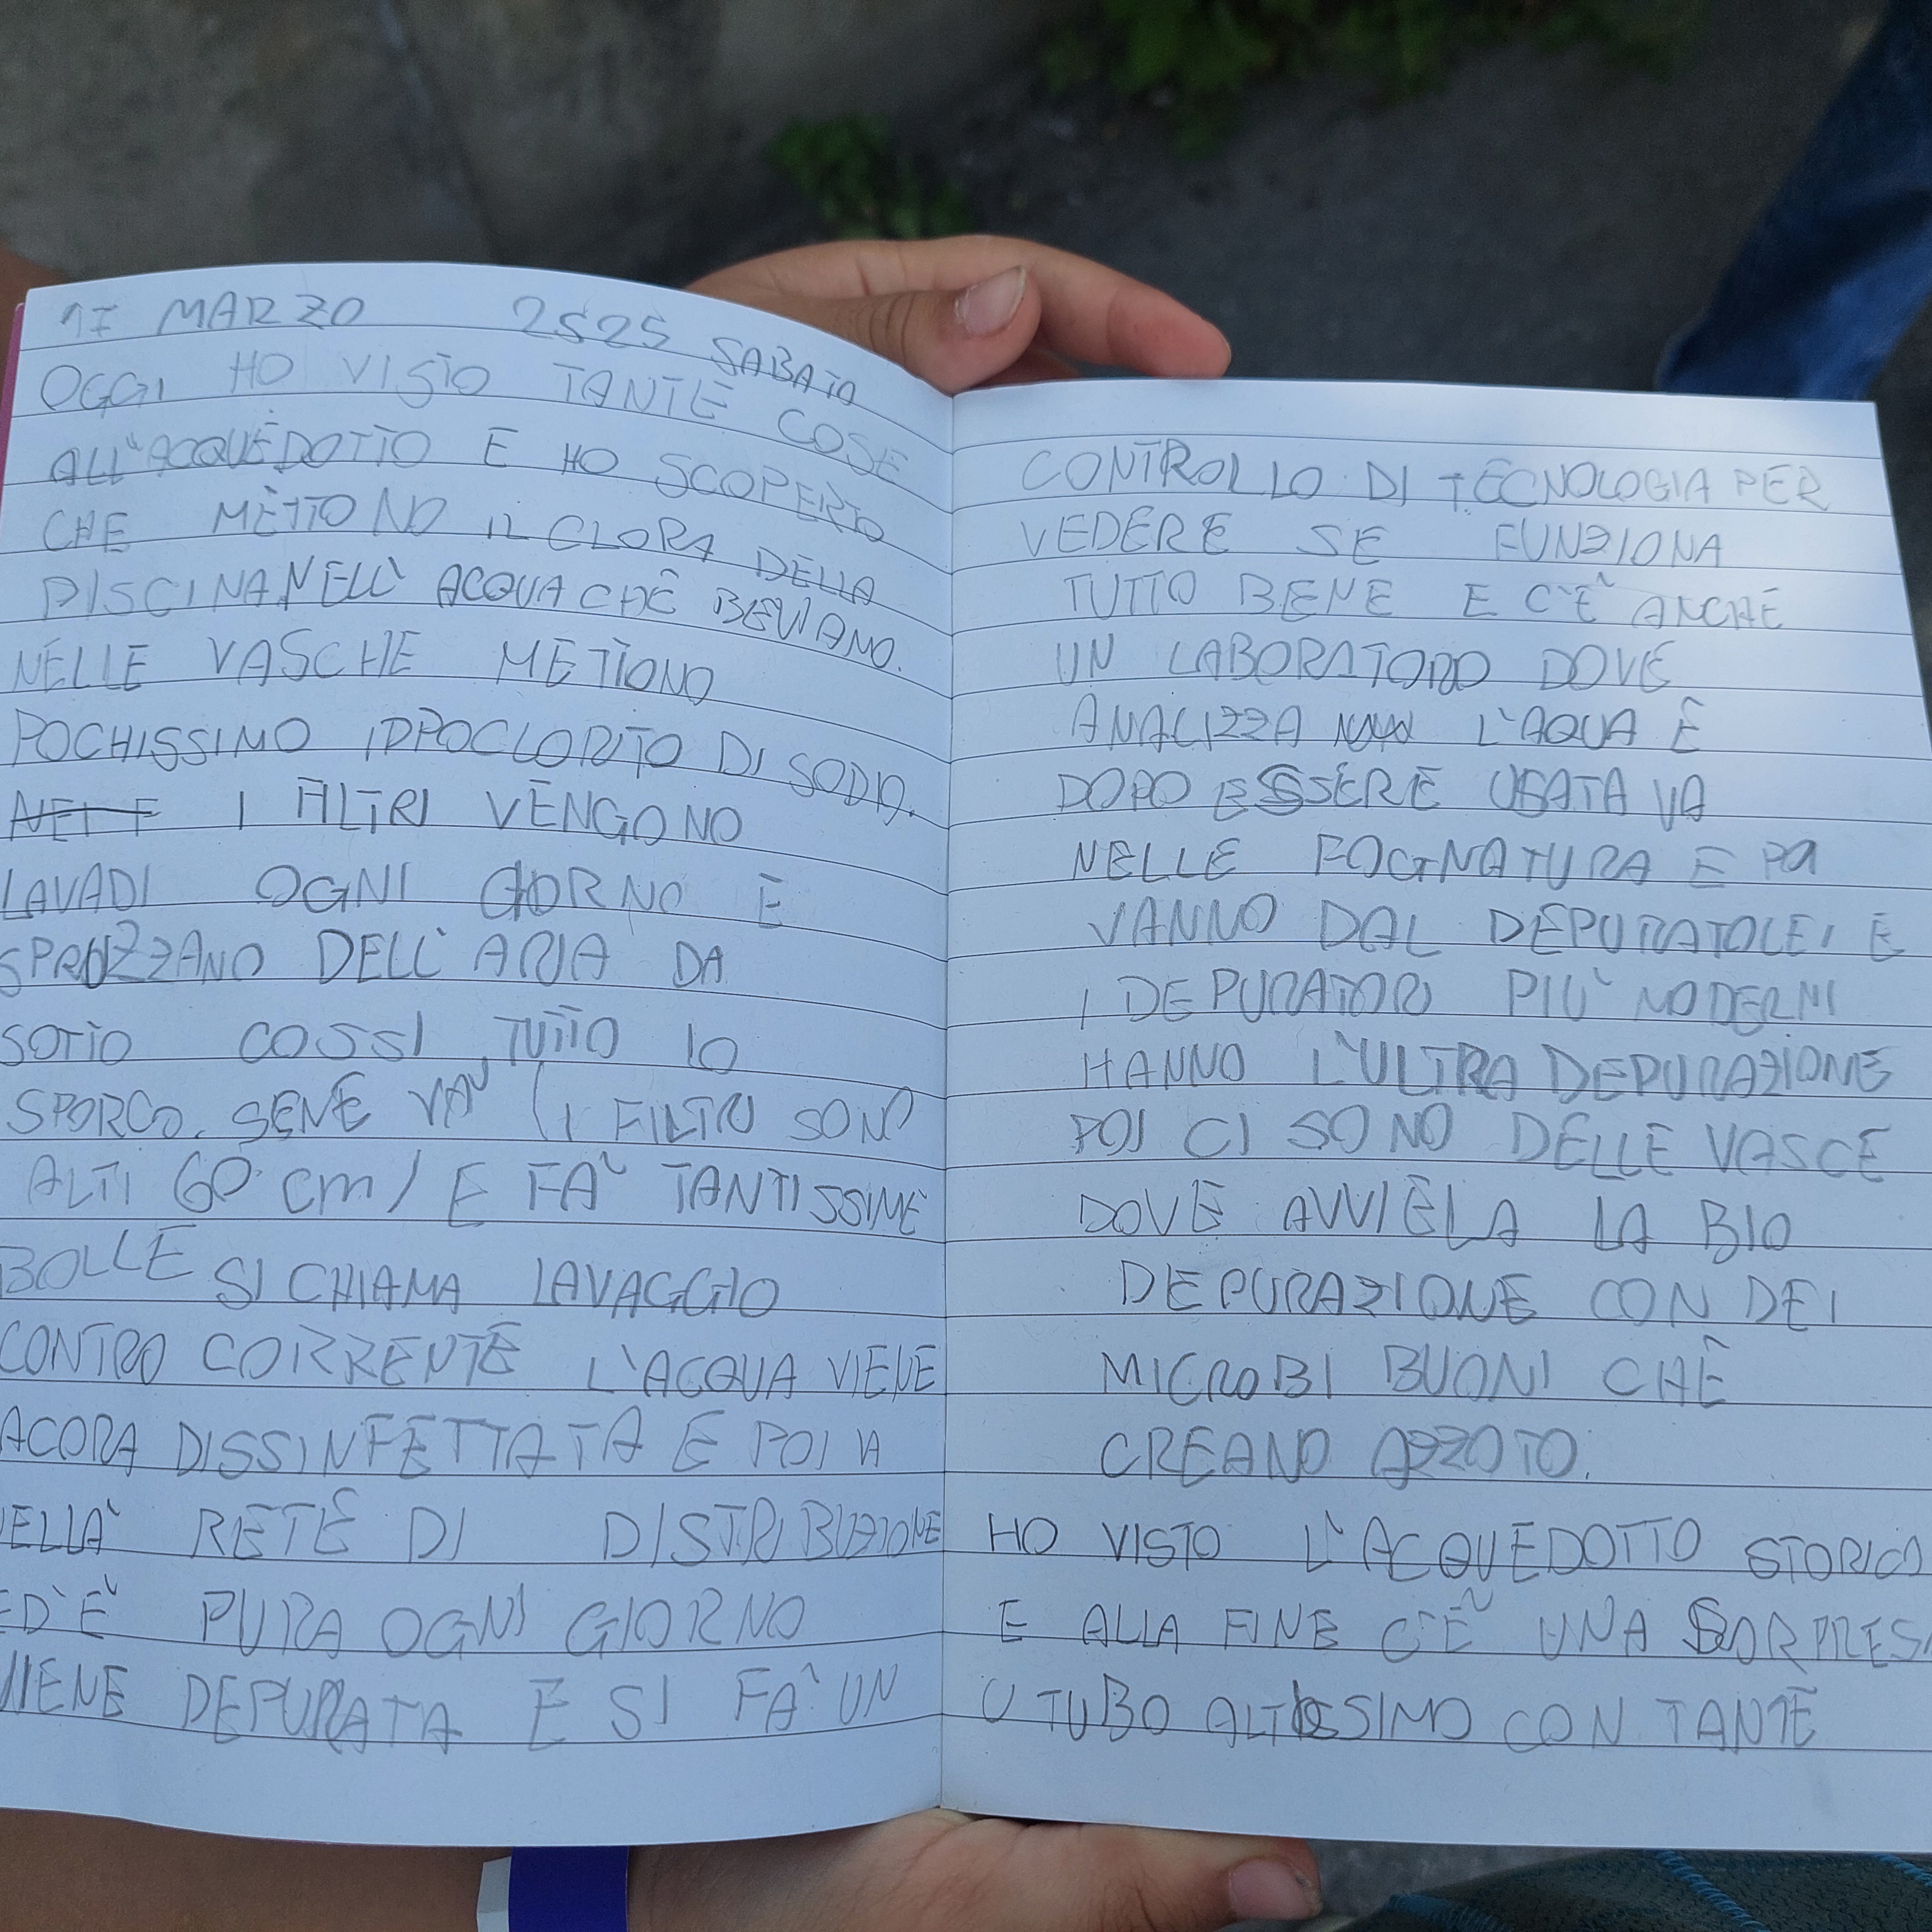 MARZO 2525 SABATO
OGGI HO VISTO TANTE COSE
ALL'ACQUEDOTTO E HO SCOPERTO
CHE METTONO IL CLORA DELLA
PISCINA NELL' ACQUA CHE BEVIAMO.
NELLE VASCHE METTONO
POCHISSIMO IPPOCLORITO DI SODIO.
NELLE I FILTRI VENGONO
LAVADI OGNI GIORNO E
SPRUZZANO DELL' ARIA DA
SOTTO COSSI TUTTO LO
SPORCO. SENE VA' (I FILTRI SONO
ALTI 60 cm) E FA' TANTISSIME
BOLLE SI CHIAMA LAVAGGIO
CONTRO CORRENTE L'ACQUA VIENE
ACORA DISSINFETTATA E POI VA
NELLA' RETE DI DISTRIBUZIONE
ED'È PURA OGNI GIORNO
VIENE DEPURATA E SI FA' UN
CONTROLLO DI TECNOLOGIA PER
VEDERE SE FUNZIONA
TUTTO BENE E C'È ANCHE
UN LABORATORIO DOVE
ANALIZZA L'AQUA E
DOPO ESSERE USATA VA
NELLE FOGNATURA E POI
VANNO DAL DEPURATOLE, E
I DEPURATORI PIU' MODERNI
HANNO L'ULTRA DEPURAZIONE
POI CI SONO DELLE VASCE
DOVE AVVIELA LA BIO
DEPURAZIONE CON DEI
MICROBI BUONI CHE
CREANO AZZOTO.
HO VISTO L'ACQUEDOTTO STORICO
E ALLA FINE C'È UNA SORPRESA
U TUBO ALTISSIMO CON TANTE